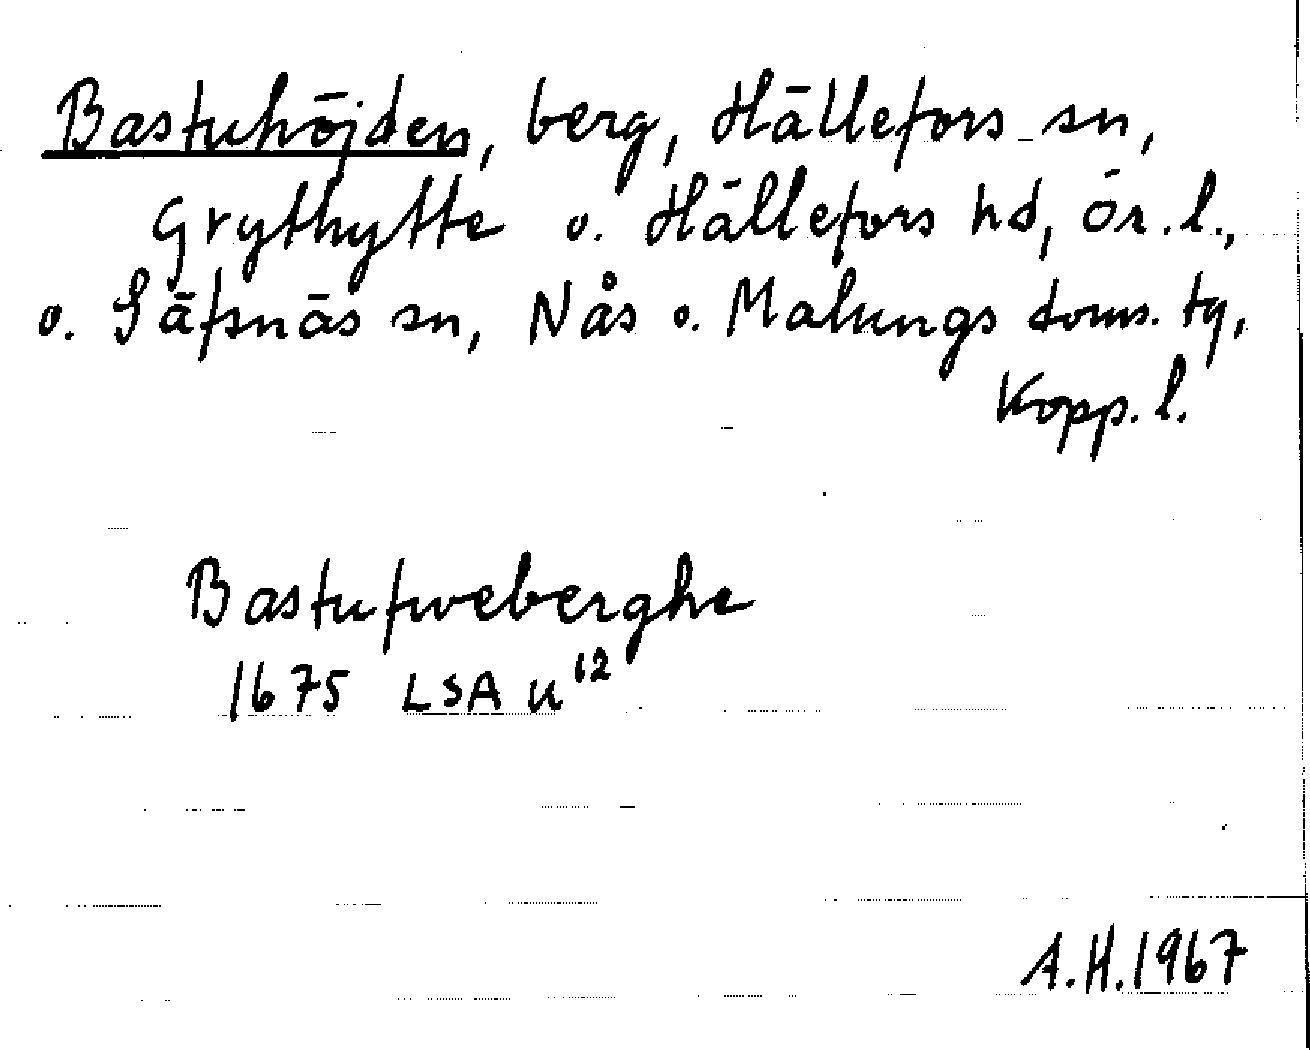 Bastuhöjden, berg, Hällefors sn,
Grythytte o. Hällefors hd, Ör. l.,
o. Säfsnäs sn, Nås o. Malungs doms. tg,
Kopp. l.
Bastufweberghe
1675 LSA U¹²
A.H. 1967